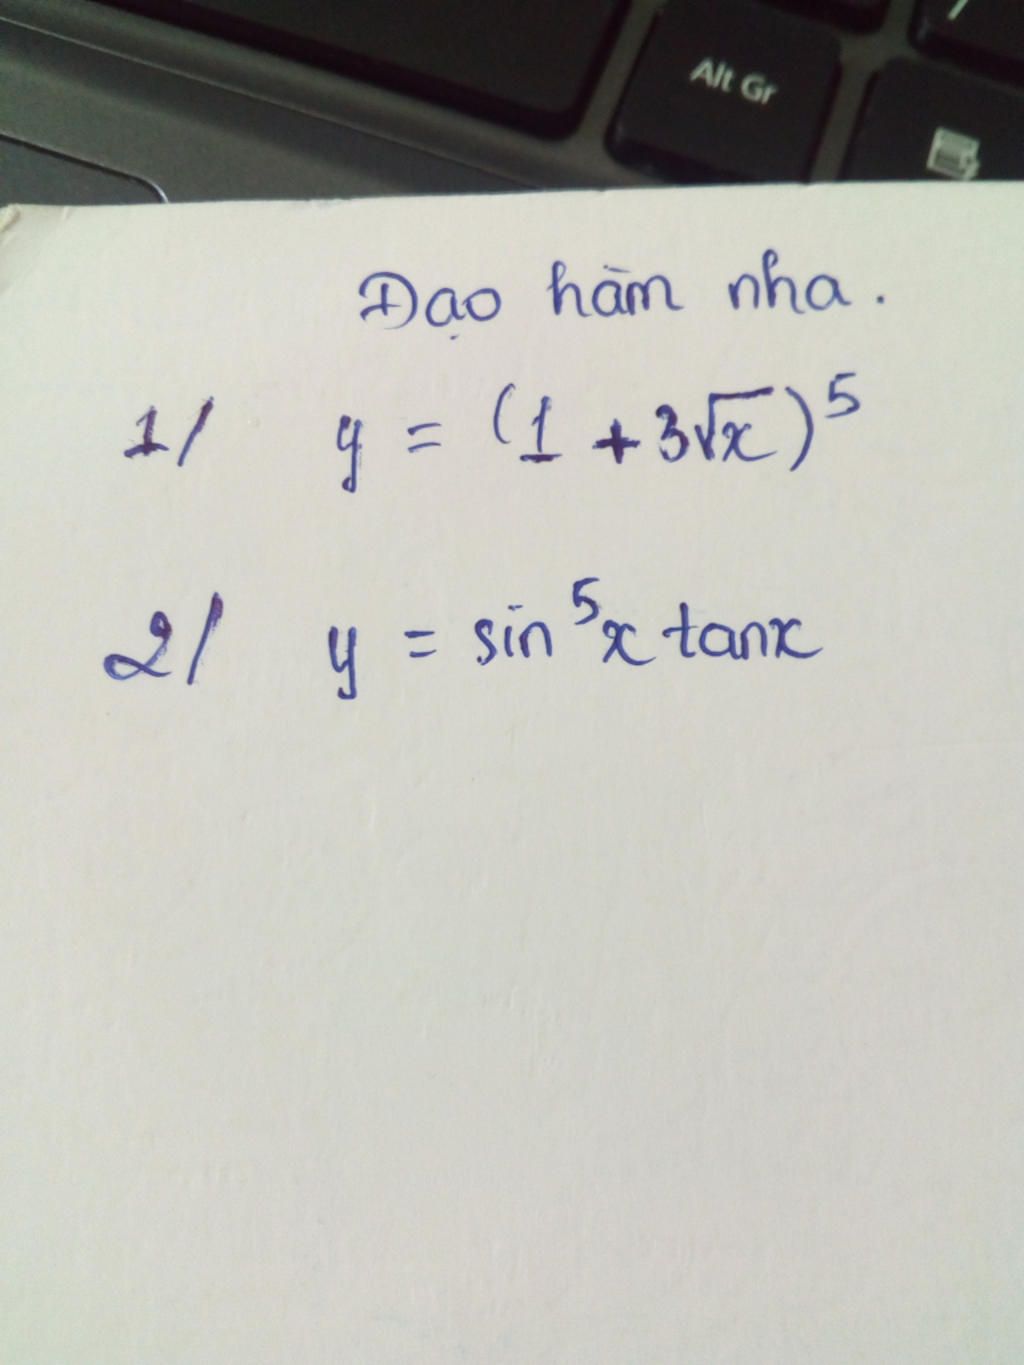 Alt Gr
Đạo hàm nha.
1/ y = (1 + 3√x)⁵
2/ y = sin⁵x tanx